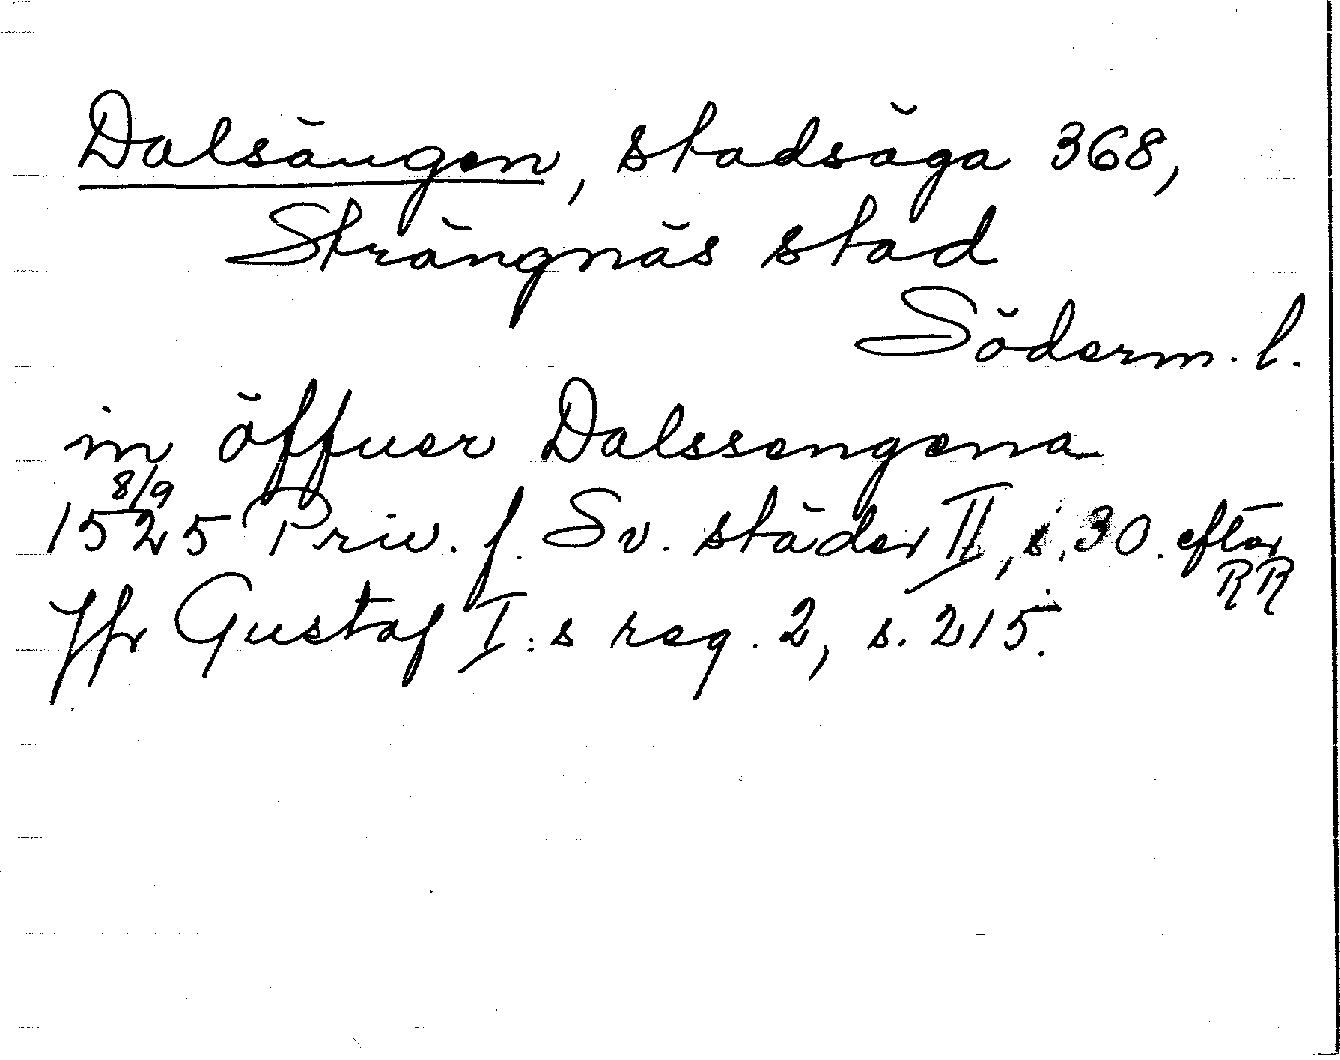 Dalsängen, stadsäga 368,
Strängnäs stad
Söderm. l.
in öffuer Dalssengena
8/9
1525 Priv. f. Sv. städer II, s. 30. efter RR
Jfr Gustaf I:s reg. 2, s. 215.